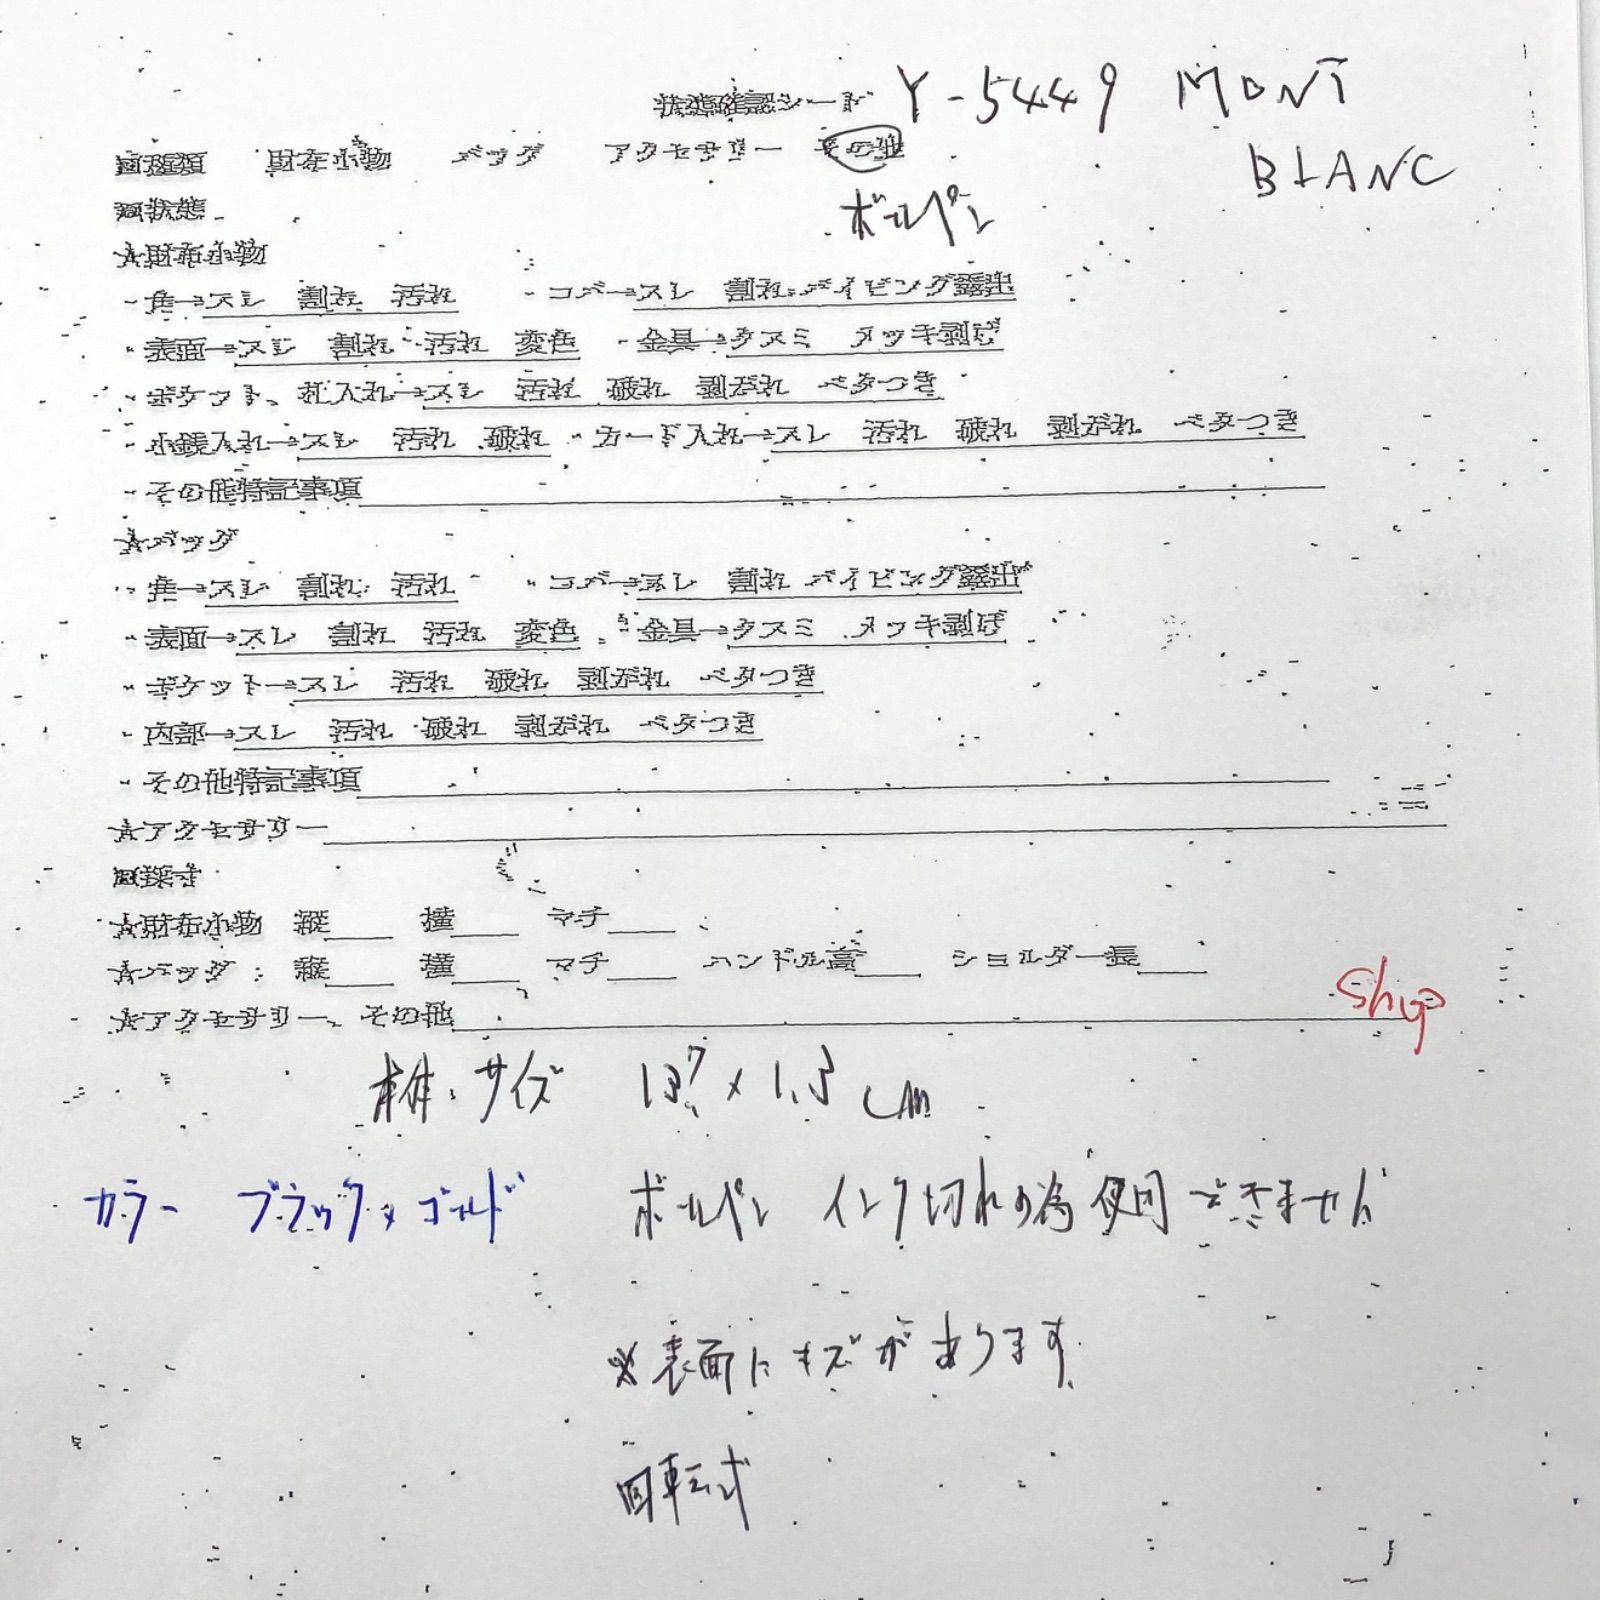 状態確認シート Y-5449 MONT
BLANC
種類 財布小物 バッグ アクセサリー その他
ボールペン
状態
★財布小物
・角→スレ 割れ 汚れ ・コバ→スレ 割れ パイピング露出
・表面→スレ 割れ 汚れ 変色 ・金具→クスミ メッキ剥げ
・ポケット、札入れ→スレ 汚れ 破れ 剥がれ ベタつき
・小銭入れ→スレ 汚れ 破れ ・カード入れ→スレ 汚れ 破れ 剥がれ ベタつき
・その他特記事項
★バッグ
・角→スレ 割れ 汚れ ・コバ→スレ 割れ パイピング露出
・表面→スレ 割れ 汚れ 変色 ・金具→クスミ メッキ剥げ
・ポケット→スレ 汚れ 破れ 剥がれ ベタつき
・内部→スレ 汚れ 破れ 剥がれ ベタつき
・その他特記事項
★アクセサリー
採寸
★財布小物 縦 横 マチ
★バッグ: 縦 横 マチ ハンドル高 ショルダー長
★アクセサリー、その他
本体:サイズ 137 x 1.3 cm
カラー ブラック×ゴールド ボールペン インク切れの為 使用できません
※表面にキズがあります
回転式